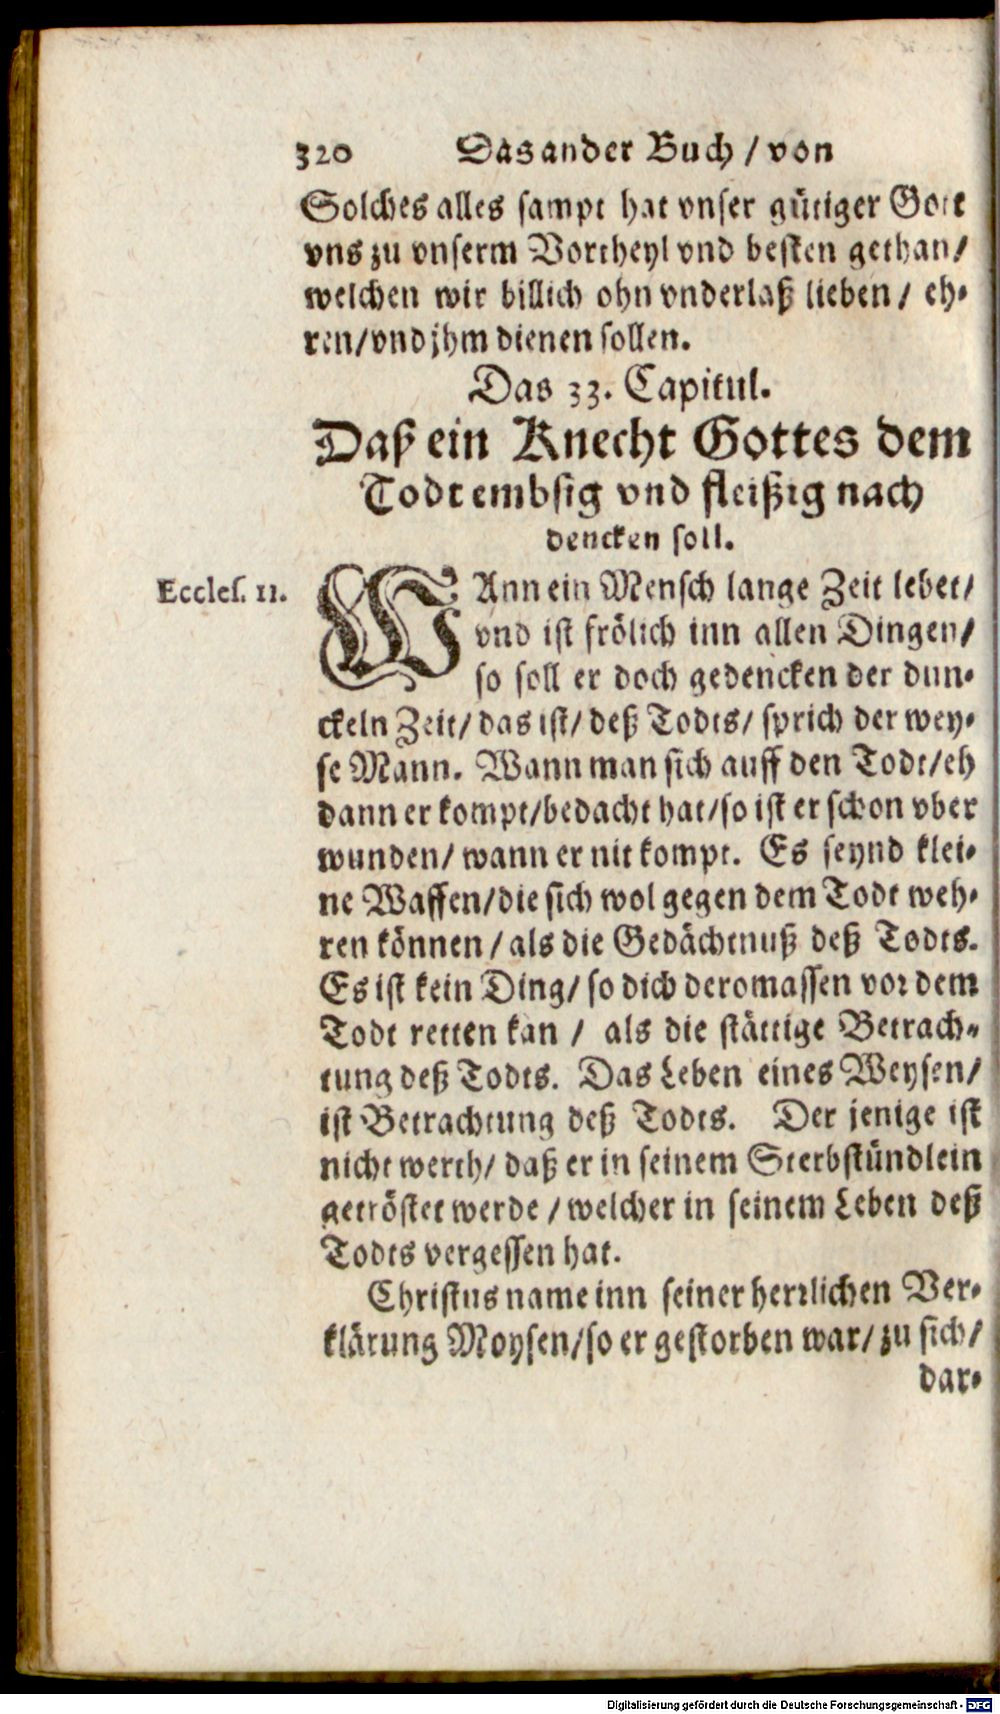 320 Das ander Buch / von
Solches alles sampt hat vnser gütiger Gott
vns zu vnserm Vortheyl vnd besten gethan/
welchen wir billich ohn vnderlaß lieben / eh-
ren/vnd jhm dienen sollen.
Das 33. Capitul.
Daß ein Knecht Gottes dem
Todt embsig vnd fleißig nach
dencken soll.
Eccles. 11.
WAnn ein Mensch lange Zeit lebet/
vnd ist frölich inn allen Dingen/
so soll er doch gedencken der dun-
ckeln Zeit/ das ist/ deß Todts/ sprich der wey-
se Mann. Wann man sich auff den Todt/eh
dann er kompt/bedacht hat/so ist er schon vber
wunden/ wann er nit kompt. Es seynd klei-
ne Waffen/die sich wol gegen dem Todt weh-
ren können / als die Gedächtnuß deß Todts.
Es ist kein Ding/ so dich deromassen vor dem
Todt retten kan / als die stättige Betrach-
tung deß Todts. Das Leben eines Weysen/
ist Betrachtung deß Todts. Der jenige ist
nicht werth/ daß er in seinem Sterbstündlein
getröstet werde / welcher in seinem Leben deß
Todts vergessen hat.
Christus name inn seiner herrlichen Ver-
klärung Moysen/so er gestorben war/ zu sich/
dar-
Digitalisierung gefördert durch die Deutsche Forschungsgemeinschaft - DFG